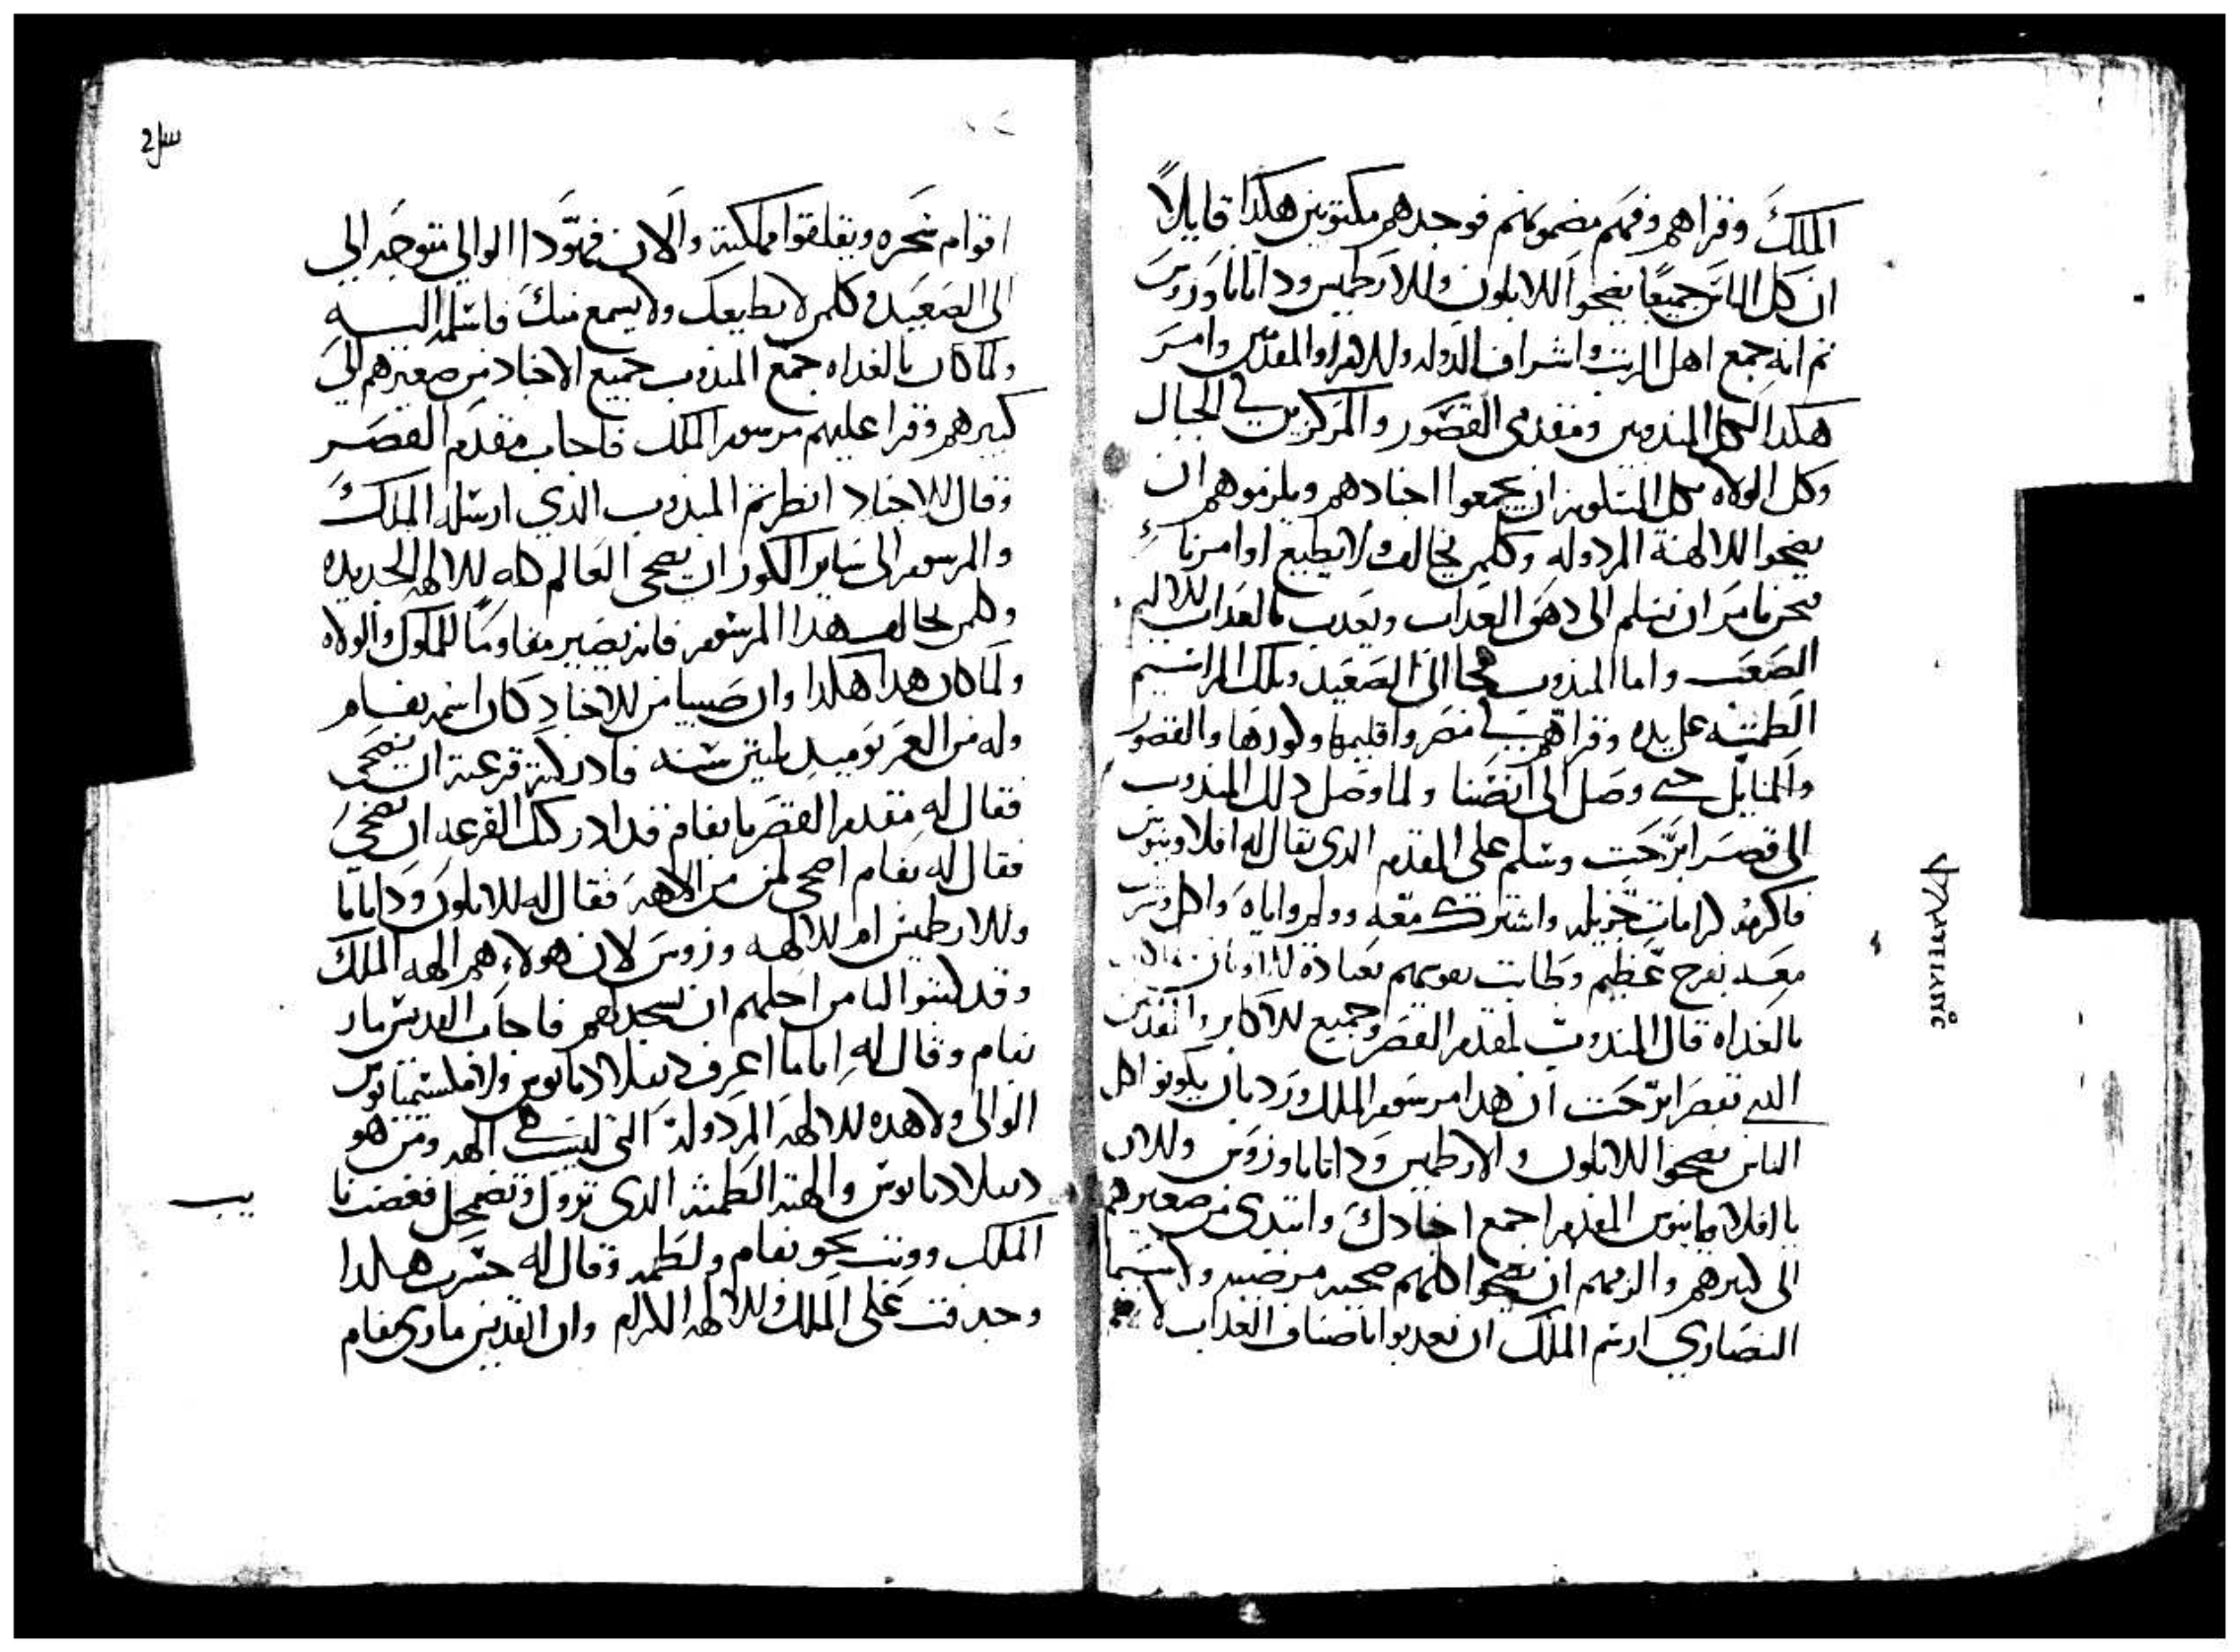 الملك وقراهم وفهم مضمونهم فوجدهم مكتوبين هكدا قايلاً
ان كل الناس جميعًا يضحوا للابلون وللارطميس وداناباوزوس
تم انه جمع اهل الريت واشراف الدوله وللامرا والمقدمين وامر
هكدا لكل المندوبين ومقدمى القصور والمركزين في الجبال
وكل الولاه كل المتسلمين ان يجمعوا اجنادهم ويلزموهم ان
يضحوا للالهة المردوله وكلمن يخالف ولا يطيع اوامرنا
فنحن نامر ان نسلم الى دهق العداب ويعدب بالعداب للاليم
الصعب واما المندوب فجا الى الصعيد وتلك المراسيم
الطمتة على يده وقراهم في مصر واقليمها وكورها والقصور
والمنابل حتى وصل الى انصنا ولما وصل دلك المندوب
الى قصر ابرحت وسلم على المقدم الدى يقال له افلاوينوس
فاكرمه كرامات جزيله واشترك معه وولم واياه واكل وشرب
معه بفرح عظيم وطابت نفوسهم بعبادة للاوتان
بالغداه قال المندوب لمقدم القصر وجميع للاكابر والمقدمين
الدى بقصر ابرحت ان هدا مرسوم الملك ورد بان يكونو اكل
الناس يضحوا للابلون والارطميس وداناباوزوس وللان
يا افلاوبانوس المقدم اجمع اجنادك وابتدى من صغيرهم
الى كبيرهم والزمهم ان يضحوا كلهم ضحيه مرضيه ولاسيما
النصارى ارسم الملك ان يعدبوا باصناف العداب لانهم
اقوام سحره ويقلقوا مملكته والان فهودا الوالي متوجه الى
الى الصعيد وكلمن لا يطيعك ولا يسمع منك فاسلمه اليه
ولما كان بالغداه جمع المندوب جميع الاجناد من صغيرهم الى
كبيرهم وقرا عليهم مرسوم الملك فاجاب مقدم القصر
وقال للاجناد انظرتم المندوب الدي ارسله الملك
والمرسوم الى ساير الكور ان يضحى العالم كله للالهه الجديده
وكلمن يخالف هدا المرسوم فانه يصير مقاومًا للملوك والولاه
ولما كان هدا هكدا وان صبيا من للاجناد كان اسمه بفام
وله من العمر يوميد تلتين سنه فادركته قرعته ان يضحى
فقال له مقدم القصر يا بفام قد ادركتك القرعه ان تضحى
فقال له بفام اضحى لمن من الالهه فقال له للابلون ودانابا
وللارطميس ام للالهه وزوس لان هولاء هم الهه الملك
وقد كتبوا لنا من اجلهم ان نسجد لهم فاجاب القديس مار
بفام وقال له انا ما اعرف دقلاديانوس ولا مكسيميانوس
الوالى ولا هده للالهه المردولة التى ليست هي الهه ومن هو
دقلاديانوس والهته الطمته الدى تزول وتضمحل فغضب نا
الملك ووتب نحو بفام ولطمه وقال له جسرت هكدا
وجدفت على الملك وللالهه الكرام وان القديس ماري بفام